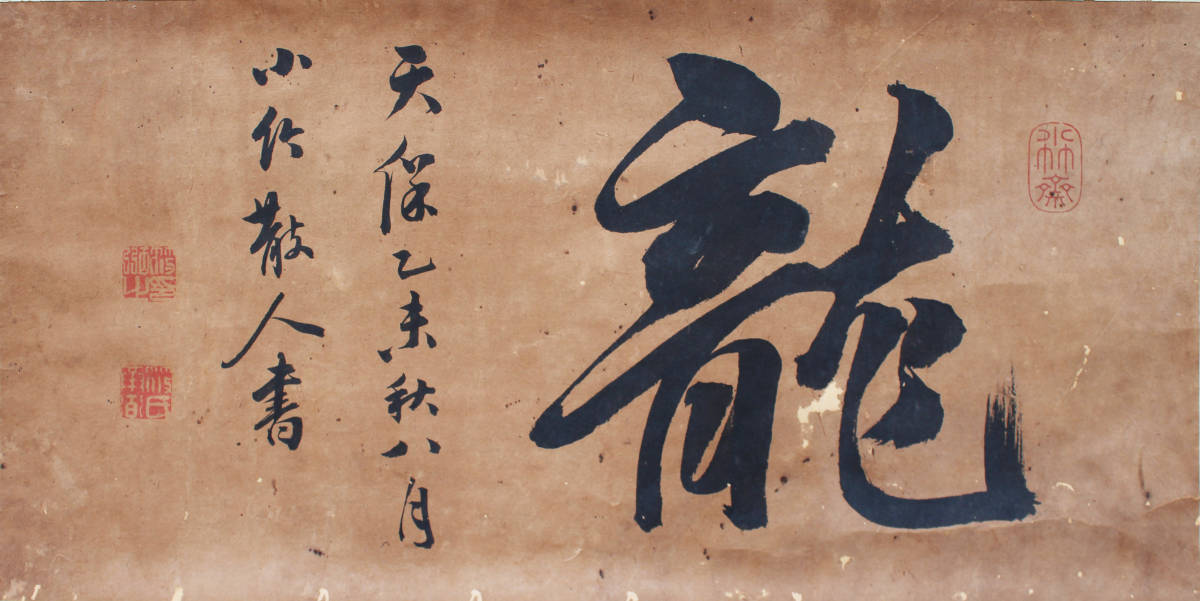 小竹齋
龍
天保乙未秋八月
小竹散人書